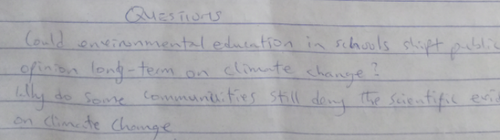 Questions
Could environmental education in schools shift public
opinion long-term on climate change?
Why do some communities still deny the scientific
on climate change